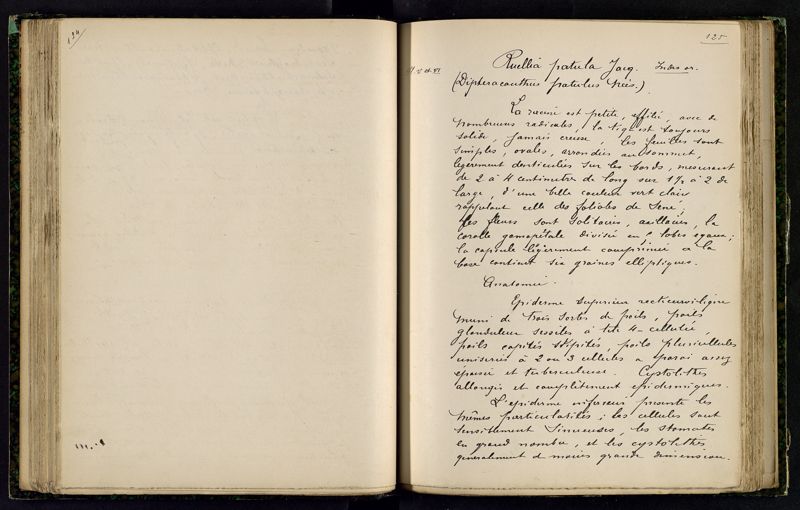 124
125
Ruellia patula Jacq. Indes or.
(Dipteracanthus patulus Nees.)
La racine est petite, effilée, avec de
nombreuses radicales, la tige est toujours
solide, jamais creuse, les feuilles sont
simples, ovales, arrondies au sommet,
légèrement denticulées sur les bords, mesurant
de 2 à 4 centimètre de long sur 1½ à 2 de
large, d'une belle couleur vert clair
rappelant celle des folioles de Séné.
Les fleurs sont solitaires, axillaires, la
corolle gamopétale divisée en lobes égaux;
la capsule légèrement comprimée à la
base contient six graines elliptiques.
Anatomie.
Epiderme supérieur recticurviligne
muni de trois sortes de poils, poils
glanduleux sessiles à tête 4-cellulée,
poils capités stipités, poils pluricellulés
unisériés à 2 ou 3 cellules à paroi assez
épaisse et tuberculeuse. Cystolithes
allongés et complètement épidermiques.
L'épiderme inférieur présente les
mêmes particularités; les cellules sont
sensiblement sinueuses, les stomates
en grand nombre, et les cystolithes
généralement de moins grande dimension.